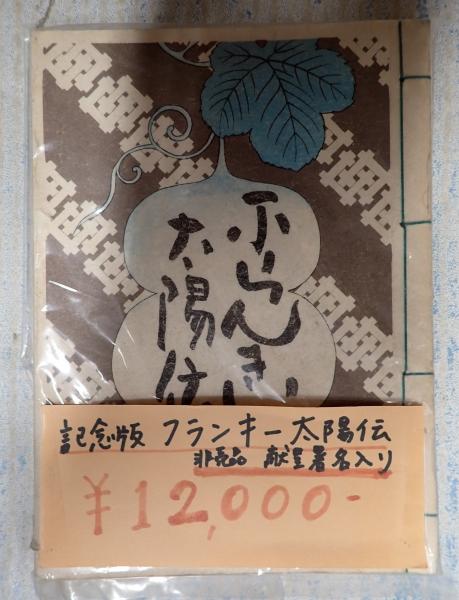 ふらんきい
太陽伝
記念版 フランキー太陽伝
非売品 献呈署名入り
¥12,000-